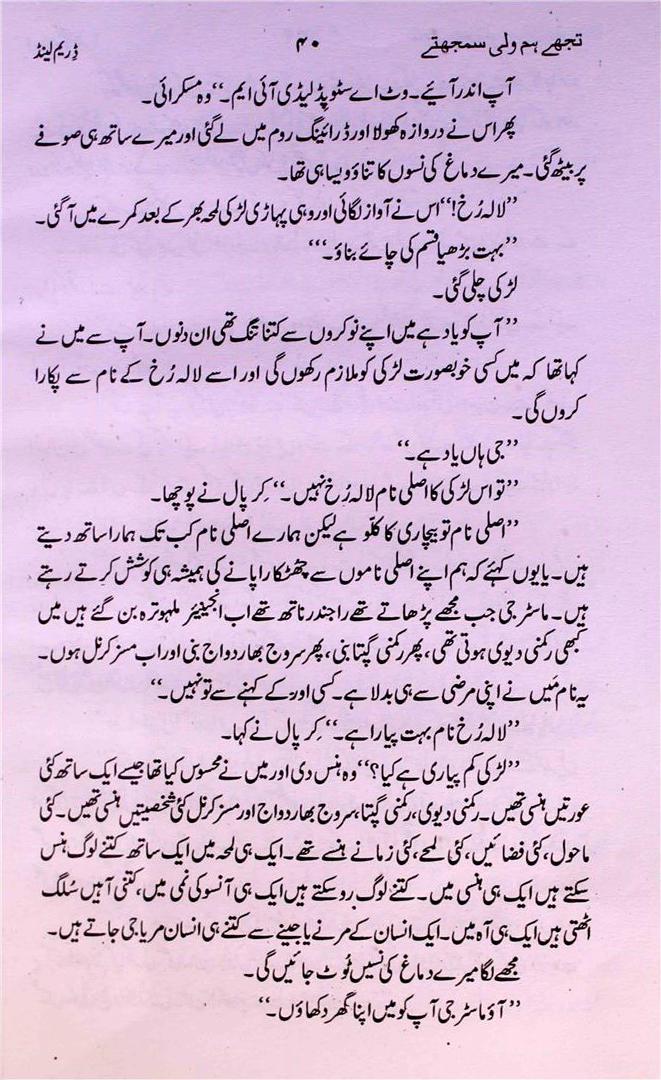 تجھے ہم ولی سمجھتے ۴۰ ڈریم لینڈ
آپ اندر آئیے۔ وٹ اے سٹوپڈ لیڈی آئی ایم۔‘‘ وہ مسکرائی۔
پھر اس نے دروازہ کھولا اور ڈرائینگ روم میں لے گئی اور میرے ساتھ ہی صوفے
پر بیٹھ گئی۔ میرے دماغ کی نسوں کا تناؤ ویسا ہی تھا۔
’’لالہ رُخ!‘‘ اس نے آواز لگائی اور وہی پہاڑی لڑکی لمحہ بھر کے بعد کمرے میں آ گئی۔
’’بہت بڑھیا قسم کی چائے بناؤ۔‘‘‘
لڑکی چلی گئی۔
’’آپ کو یاد ہے میں اپنے نوکروں سے کتنا تنگ تھی ان دنوں۔ آپ سے میں نے
کہا تھا کہ میں کسی خوبصورت لڑکی کو ملازم رکھوں گی اور اسے لالہ رُخ کے نام سے پکارا
کروں گی۔
’’جی ہاں یاد ہے۔‘‘
’’تو اس لڑکی کا اصلی نام لالہ رُخ نہیں۔‘‘ کِرپال نے پوچھا۔
’’اصلی نام تو بیچاری کا کلّو ہے لیکن ہمارے اصلی نام کب تک ہمارا ساتھ دیتے
ہیں۔ یا یوں کہئے کہ ہم اپنے اصلی ناموں سے چھٹکارا پانے کی ہمیشہ ہی کوشش کرتے رہتے
ہیں۔ ماسٹر جی جب مجھے پڑھاتے تھے راجندر ناتھ تھے اب انجینئر ملہوترہ بن گئے ہیں میں
کبھی رکمنی دیوی ہوتی تھی، پھر رکمنی گپتا بنی، پھر سروج بھاردواج بنی اور اب مسز کرنل ہوں۔
یہ نام مَیں نے اپنی مرضی سے ہی بدلا ہے۔ کسی اور کے کہنے سے تو نہیں۔‘‘
’’لالہ رُخ نام بہت پیارا ہے۔‘‘ کِرپال نے کہا۔
’’لڑکی کم پیاری ہے کیا؟‘‘ وہ ہنس دی اور میں نے محسوس کیا تھا جیسے ایک ساتھ کئی
عورتیں ہنسی تھیں۔ رکمنی دیوی، رکمنی گپتا، سروج بھاردواج اور مسز کرنل کئی شخصیتیں ہنسی تھیں۔ کئی
ماحول، کئی فضائیں، کئی لمحے، کئی زمانے ہنسے تھے۔ ایک ہی لمحہ میں ایک ساتھ کتنے لوگ ہنس
سکتے ہیں ایک ہی ہنسی میں۔ کتنے لوگ رو سکتے ہیں ایک ہی آنسو کی نمی میں، کتنی آہیں سُلگ
اٹھتی ہیں ایک ہی آہ میں۔ ایک انسان کے مرنے یا جینے سے کتنے ہی انسان مر یا جی جاتے ہیں۔
مجھے لگا میرے دماغ کی نسیں ٹوٹ جائیں گی۔
’’آؤ ماسٹر جی آپ کو میں اپنا گھر دکھاؤں۔‘‘